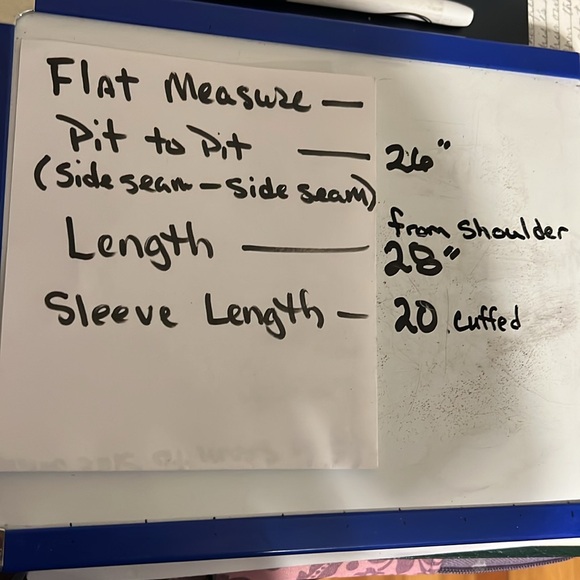 Flat Measure —
Pit to Pit — 26"
(Side seam - side seam)
Length — from shoulder 28"
Sleeve Length — 20 cuffed